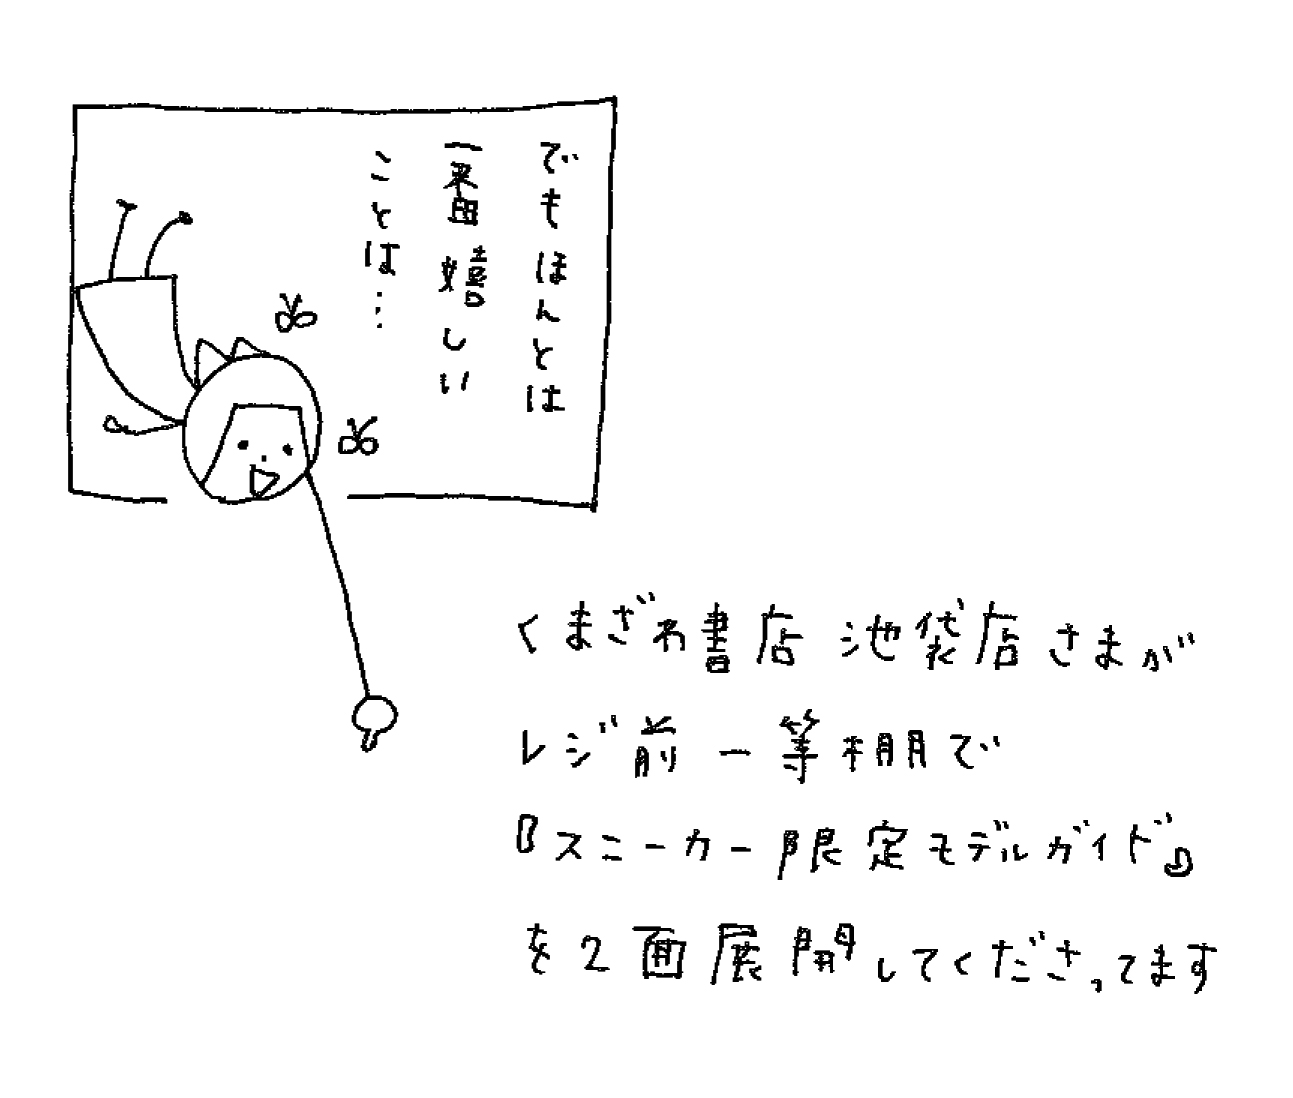 でもほんとは
一番嬉しい
ことは…
くまざわ書店 池袋店さまが
レジ前一等棚で
『スニーカー限定モデルガイド』
を2面展開してくださってます